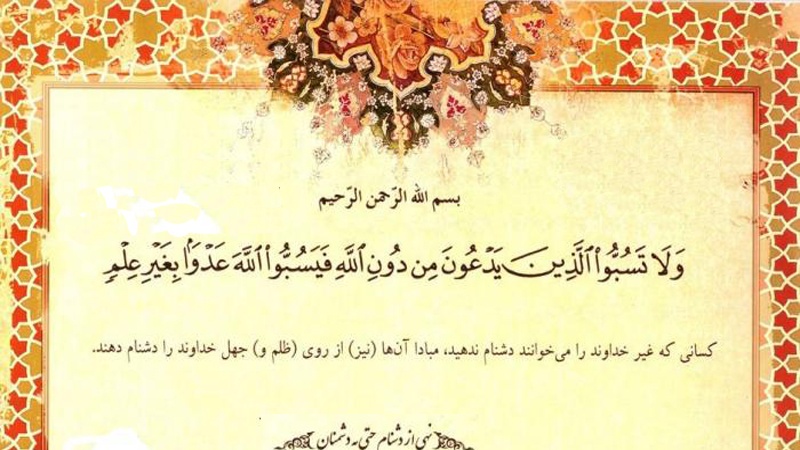 بسم الله الرّحمن الرّحیم
وَلَا تَسُبُّوا۟ ٱلَّذِينَ يَدْعُونَ مِن دُونِ ٱللَّهِ فَيَسُبُّوا۟ ٱللَّهَ عَدْوًۢا بِغَيْرِ عِلْمٍۢ
کسانی که غیر خداوند را می‌خوانند دشنام ندهید، مبادا آن‌ها (نیز) از روی (ظلم و) جهل خداوند را دشنام دهند.
نهی از دشنام حتی به دشمنان